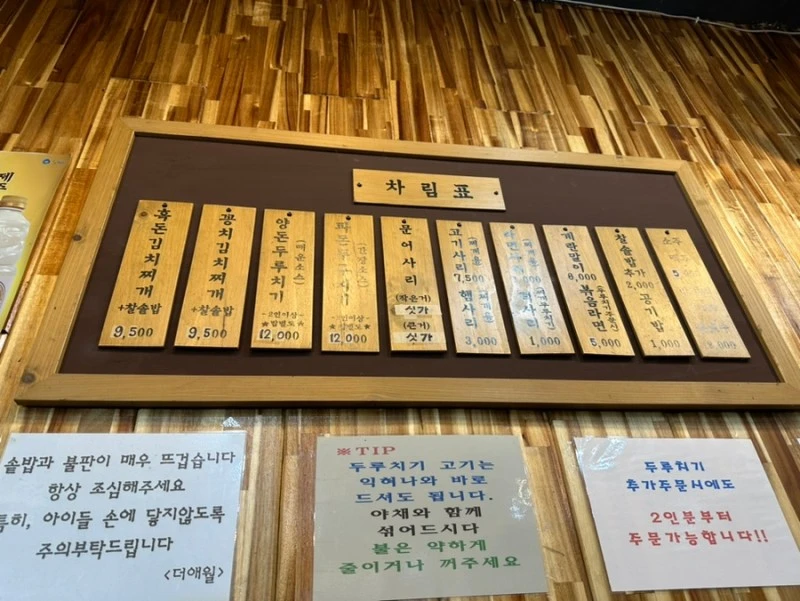 차림표
흑돈김치찌개
+찰솥밥
9,500
꽁치김치찌개
+찰솥밥
9,500
양돈두루치기
(매운소스)
-2인이상-
★밥별도★
12,000
(간장소스)
★밥별도★
12,000
문어사리
(작은거)
싯가
(큰거)
싯가
고기사리
7,500
햄사리
3,000
1,000
계란말이
6,000
볶음라면
5,000
찰솥밥
추가
2,000
공기밥
1,000
소주
솥밥과 불판이 매우 뜨겁습니다
항상 조심해주세요
특히, 아이들 손에 닿지않도록
주의부탁드립니다
<더애월>
※TIP
두루치기 고기는
익혀나와 바로
드셔도 됩니다.
야채와 함께
섞어드시다
불은 약하게
줄이거나 꺼주세요
두루치기
추가주문시에도
2인분부터
주문가능합니다!!